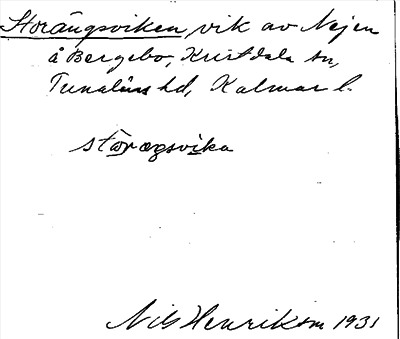 Storängsviken, vik av Nejen
å Bergebo, Kristdala sn,
Tunaläns hd, Kalmar l.
storægsvika
Nils Henrikson 1931